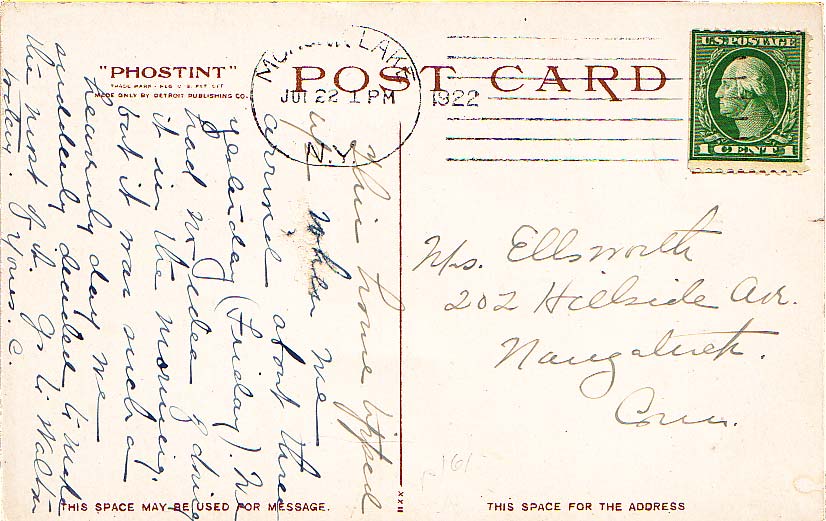 "PHOSTINT"
TRADE MARK - REG. U.S. PAT. OFF.
MADE ONLY BY DETROIT PUBLISHING CO.
POST CARD
MOHONK LAKE
JUL 22 1 PM
1922
N.Y.
U.S. POSTAGE
1 CENT 1
This home tipped
up when we
arrived about three
yesterday (Friday). We
had no idea of doing
it in the morning,
but it was such a
heavenly day we
suddenly decided to make
the most of it. Go to Walton
today. Yours. C.
Mrs. Ellsworth
202 Hillside Ave.
Naugatuck.
Conn.
161
XXII
THIS SPACE MAY BE USED FOR MESSAGE.
THIS SPACE FOR THE ADDRESS